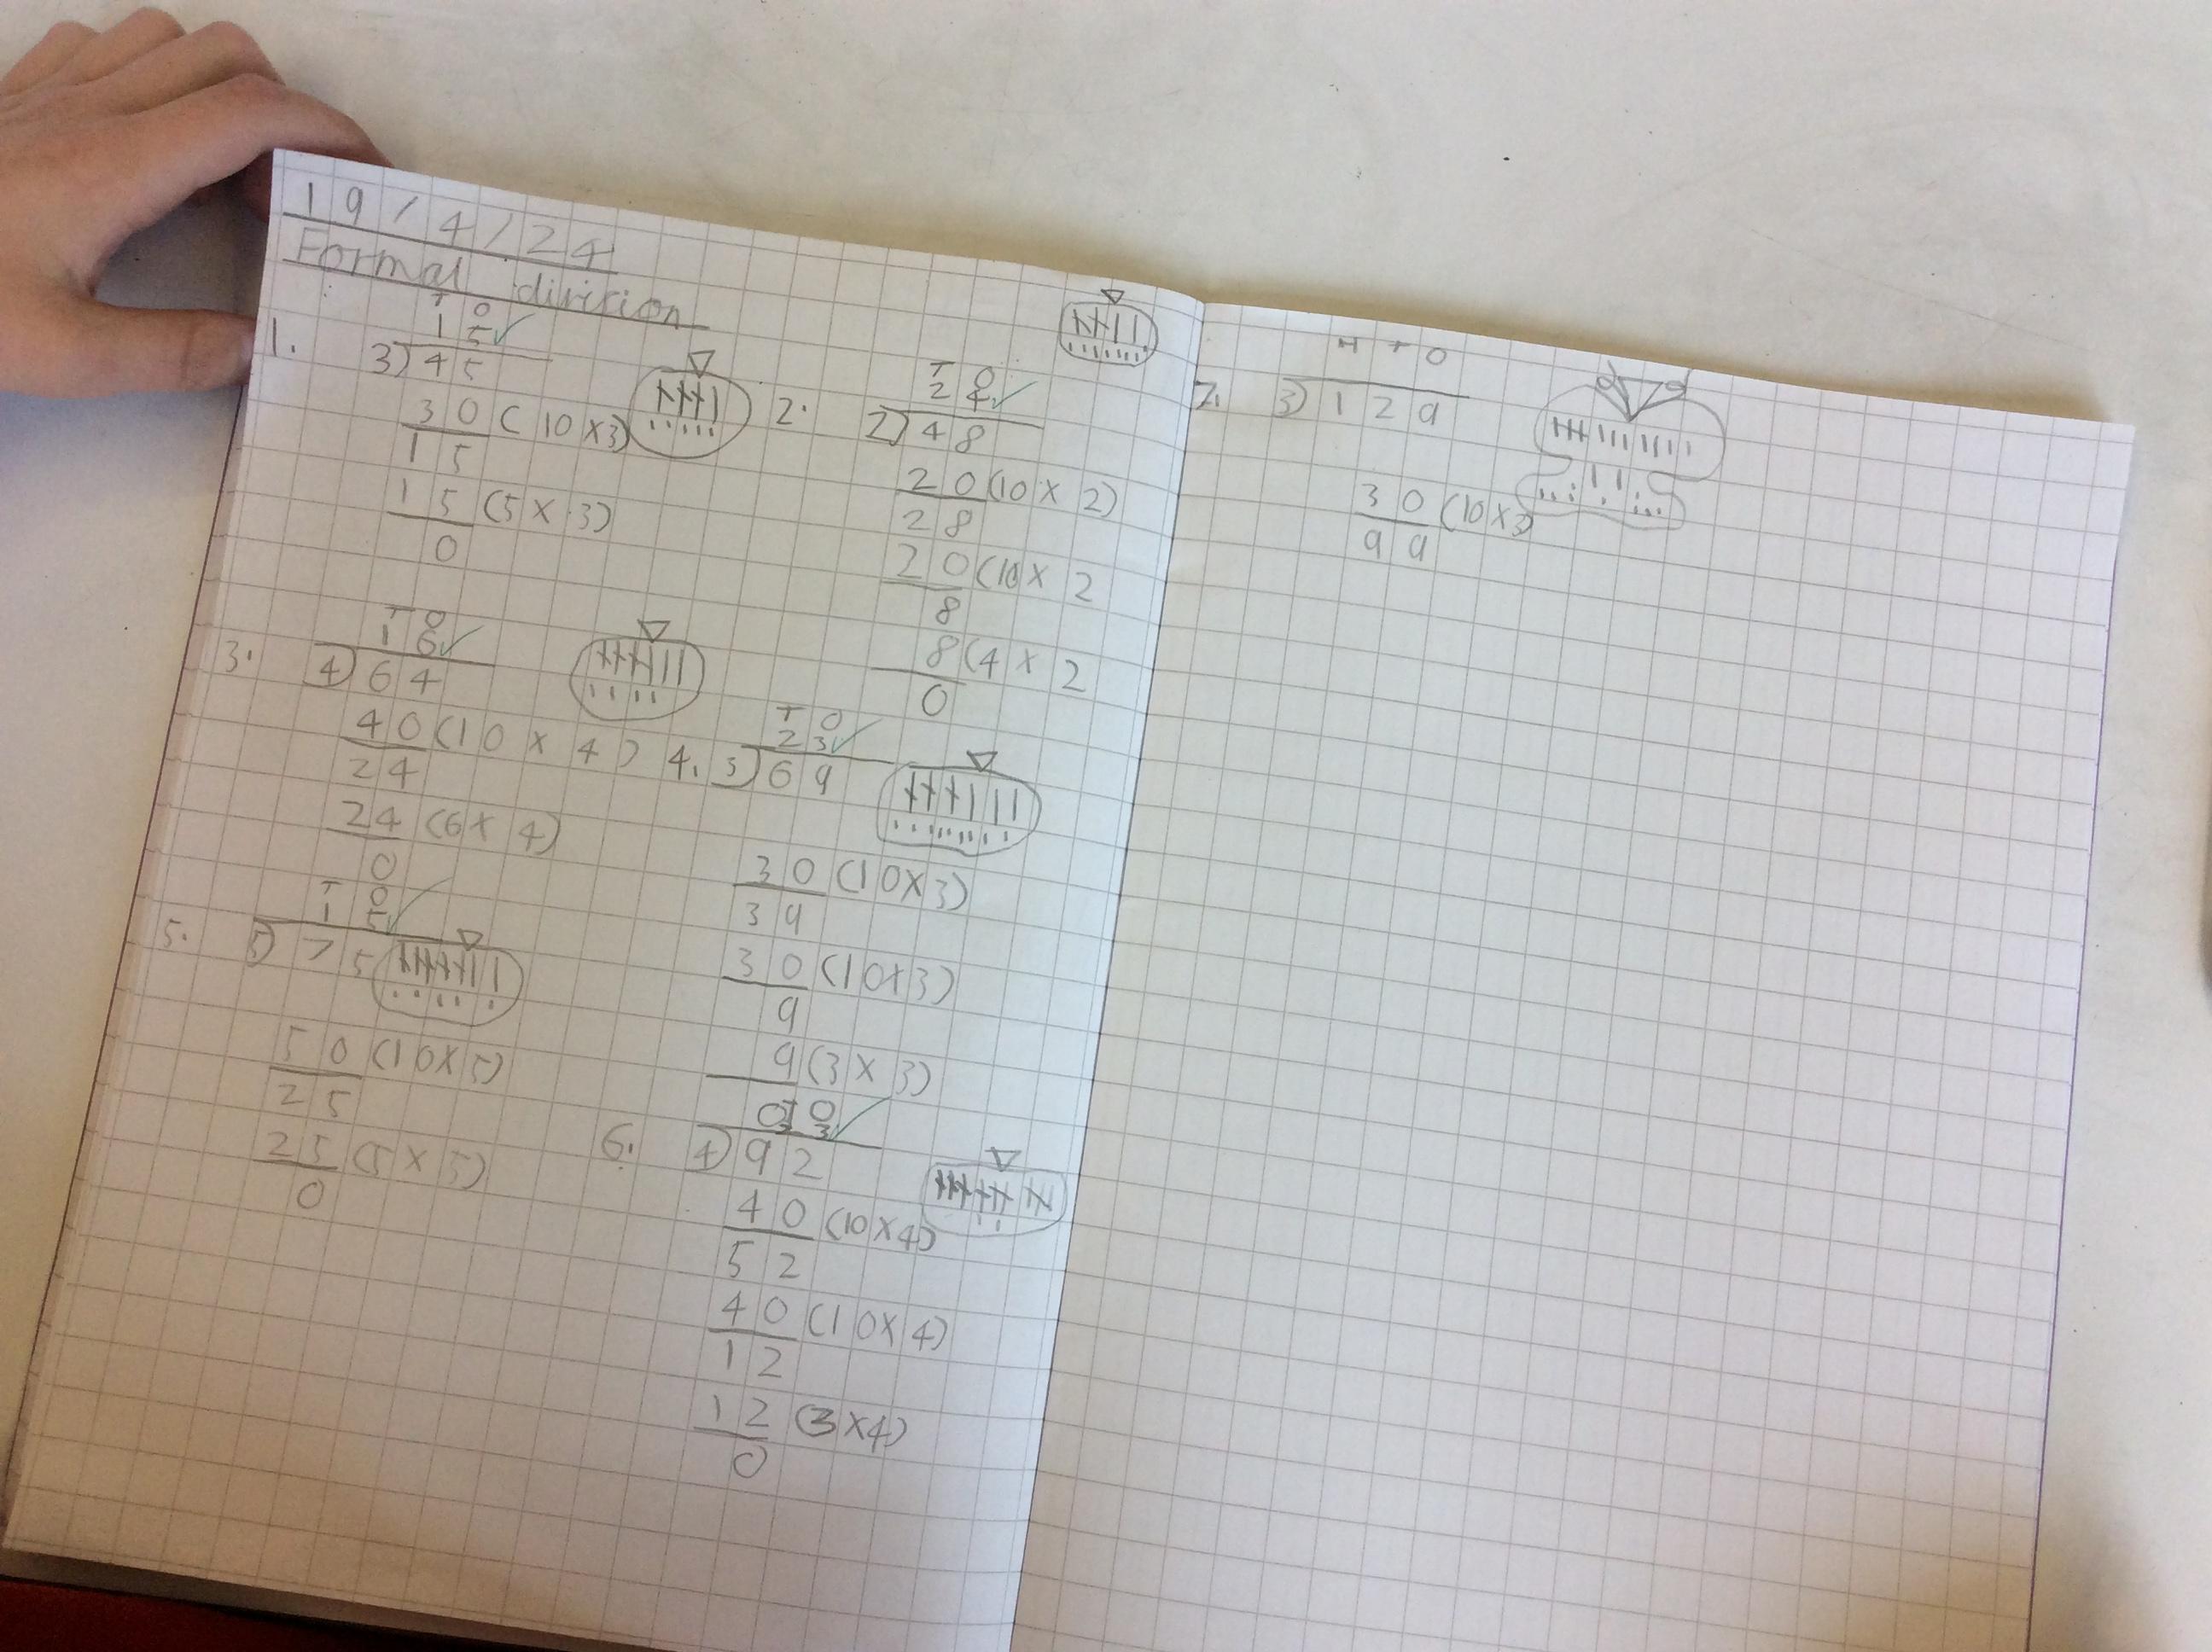 19/4/24
Formal division
T O
1 5
1. 3)45
30(10x3)
15
15(5x3)
0
T O
2 4
2. 2)48
20(10x2)
28
20(10x2
8
8(4x2
0
T O
1 6
3. 4)64
40(10x4)
24
24(6x4)
0
T O
2 3
4. 3)69
30(10x3)
39
30(10x3)
9
9(3x3)
0
T O
1 5
5. 5)75
50(10x5)
25
25(5x5)
0
T O
2 3
6. 4)92
40(10x4)
52
40(10x4)
12
12(3x4)
0
H T O
7. 3)129
30(10x3
99